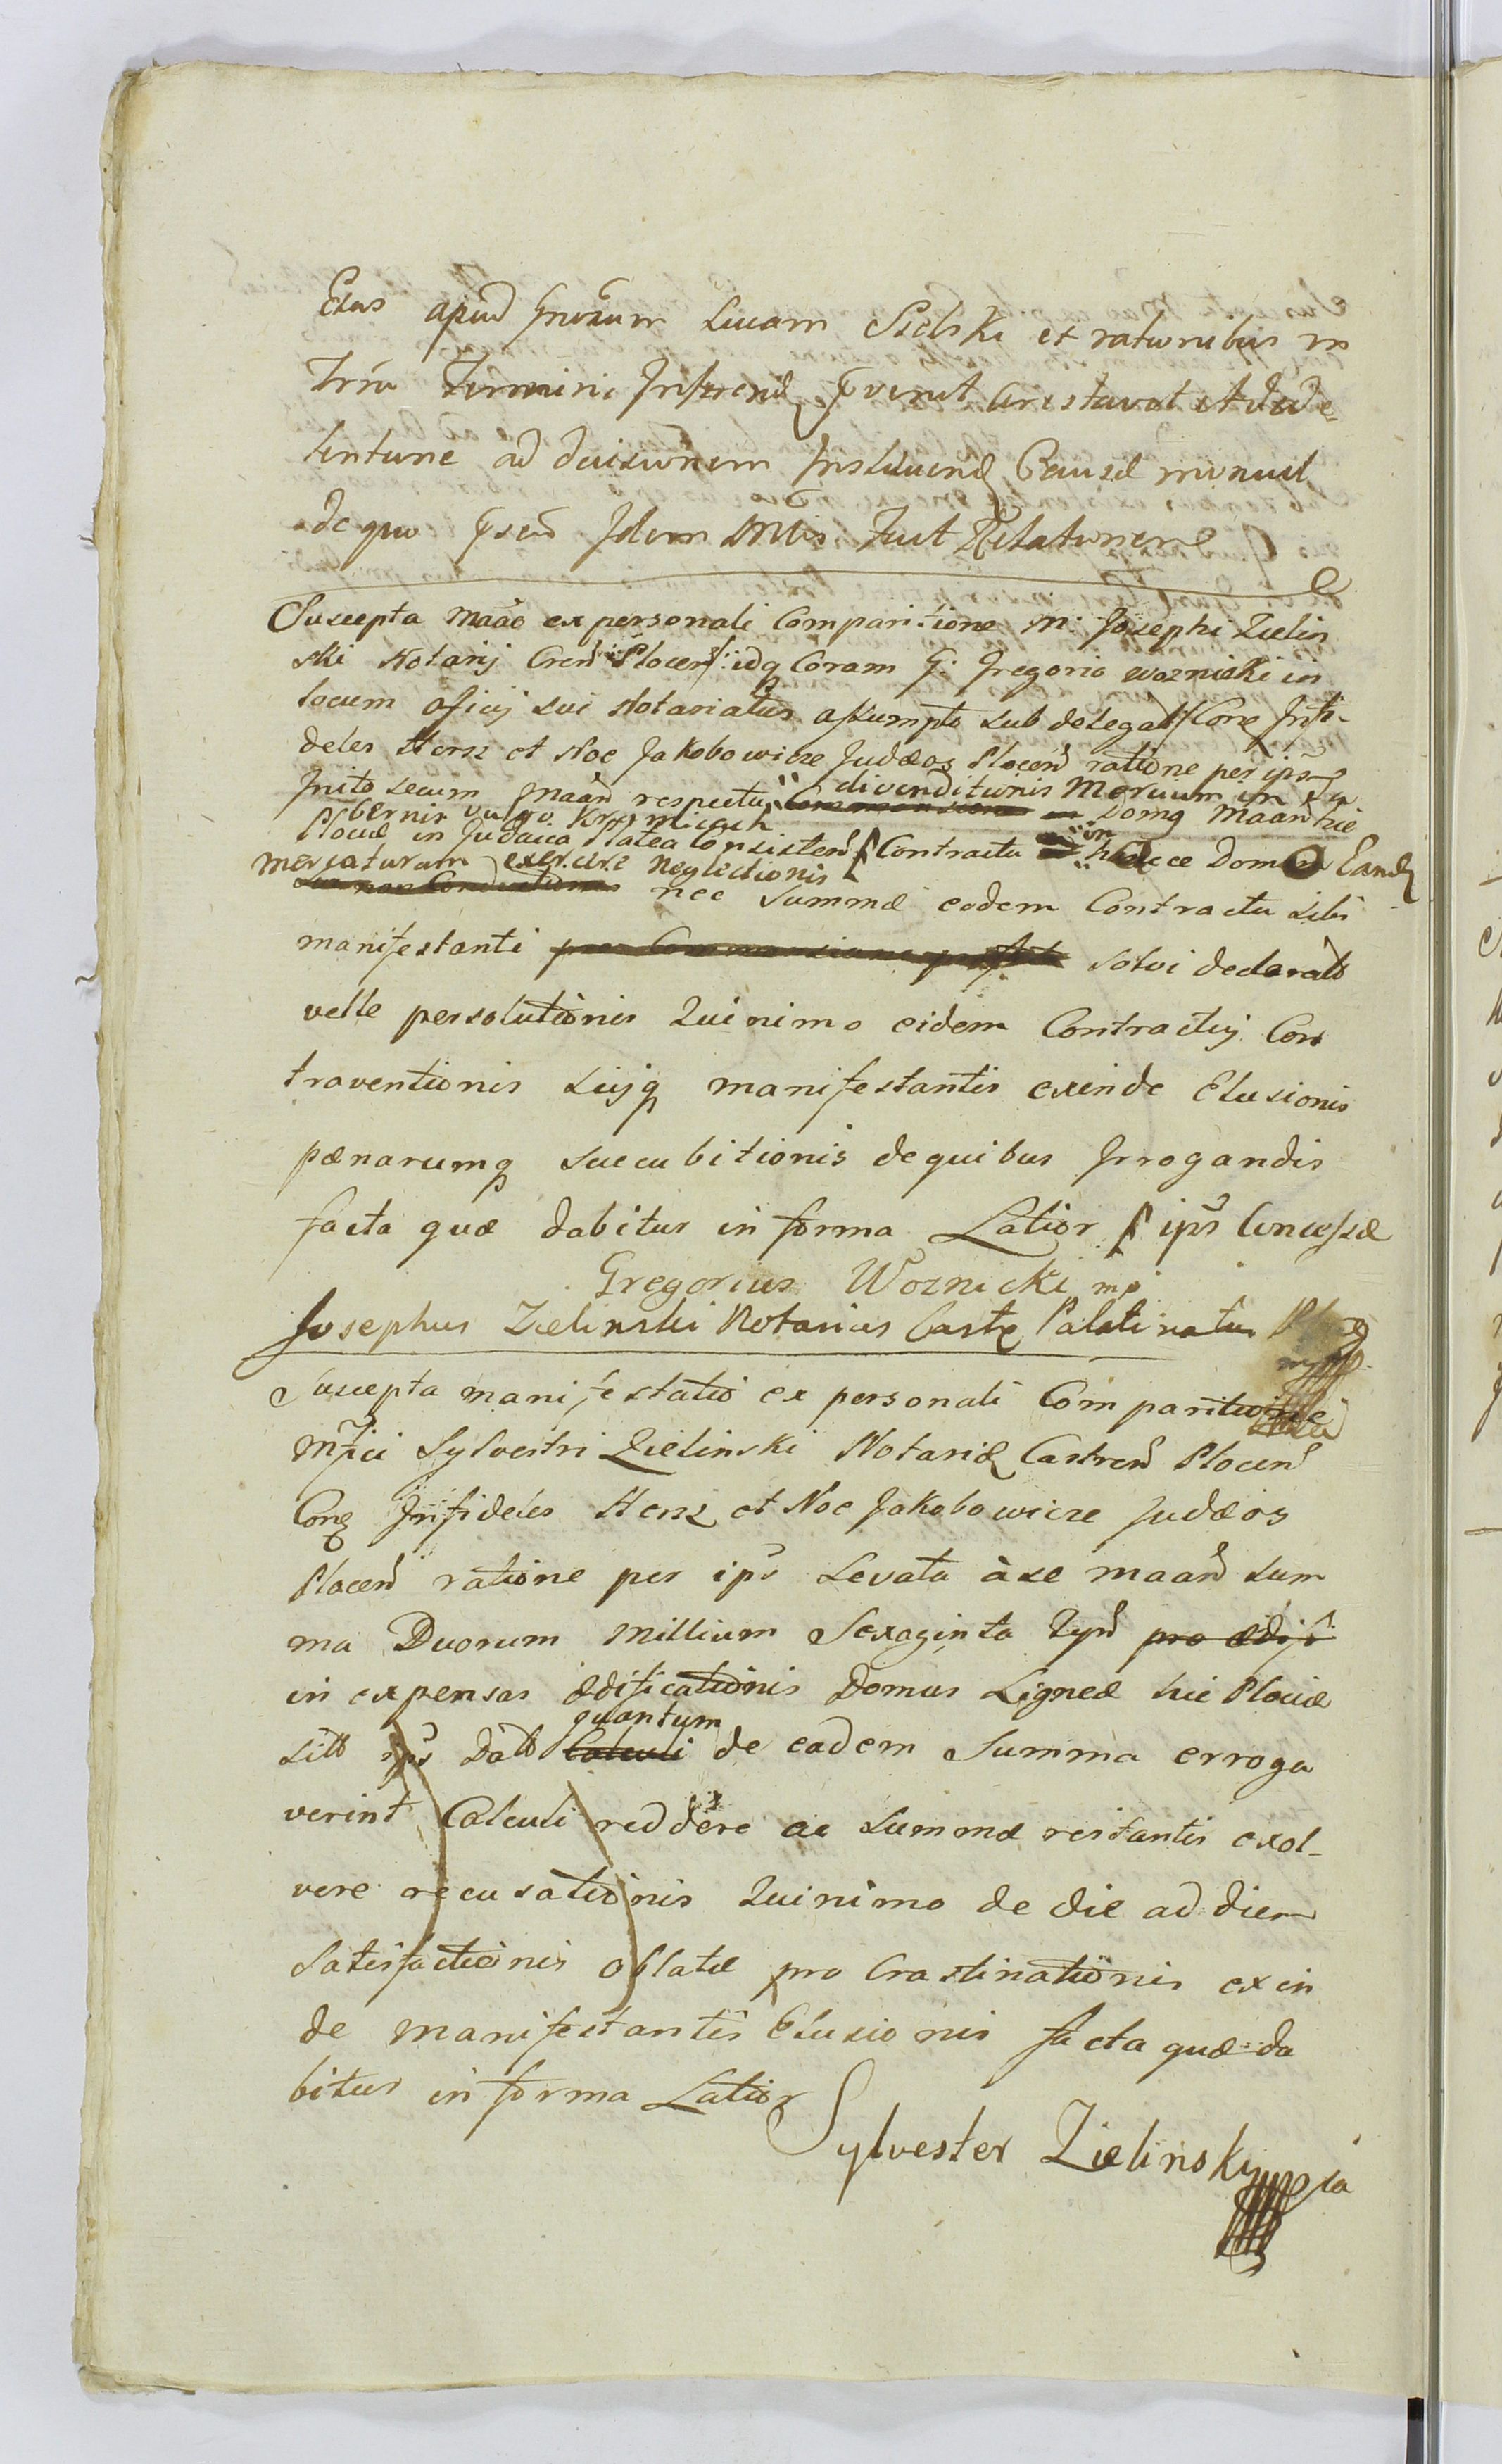 apud Gnosum Lucam Sielski et rationibus in
Termini Inferend
ad decisionem Instituend Causæ
de quo Idem fecit Relationem
Suscepta maāo ex personali Comparitione M: Josephi Zielin
ski Notarij Plocen idq Coram G: Gregorio Woznicki in
locum oficij sui Notariatus assumpto sub delegat Cone Infi-
deles Hersz et Noe Jakobowicze Judæos Plocen ratione per ips
Inito secum maan respectu divenditionis Mercium in Domo Maan hic
bernis vulgo Kramnicach
Plociæ in Judaica Platea Consisten Contractu in hacce Domo Eand
mercaturam exercere Neglectionis
nec Summæ eodem Contractu sibi
manifestanti solvi declarat
velle persolutionis Quinimo eidem Contractuj Con
traventionis suijq manifestantis exinde Elusionis
pœnarumq succubitionis de quibus Irrogandis
facta quæ dabitur in forma Latior ips Concussæ
Gregorius Woznicki mp
Josephus Zielinski Notarius Castr Palatinatus
Suscepta manifestatio ex personali Comparitione
Mfici Sylvestri Zielinski Notarid Castren Plocen
Conq Infideles Hersz et Noe Jakobowicze Judæos
Plocen ratione per ips Levata à se maan sum
ma Duorum Millium Sexaginta pro ædif
in expensas ædificationis Domus Ligneæ hic Plociæ
quantum
sitt ips Datt Calculi de eadem Summa erroga
verint Calculi reddere ac Summæ restantis exol-
vere recusationis Quinimo de die ad diem
Satisfactionis oblatæ pro Crastinationis exin
de manifestantis Elusionis facta quæ da
bitur in forma Latior
Sylvester Zielinski